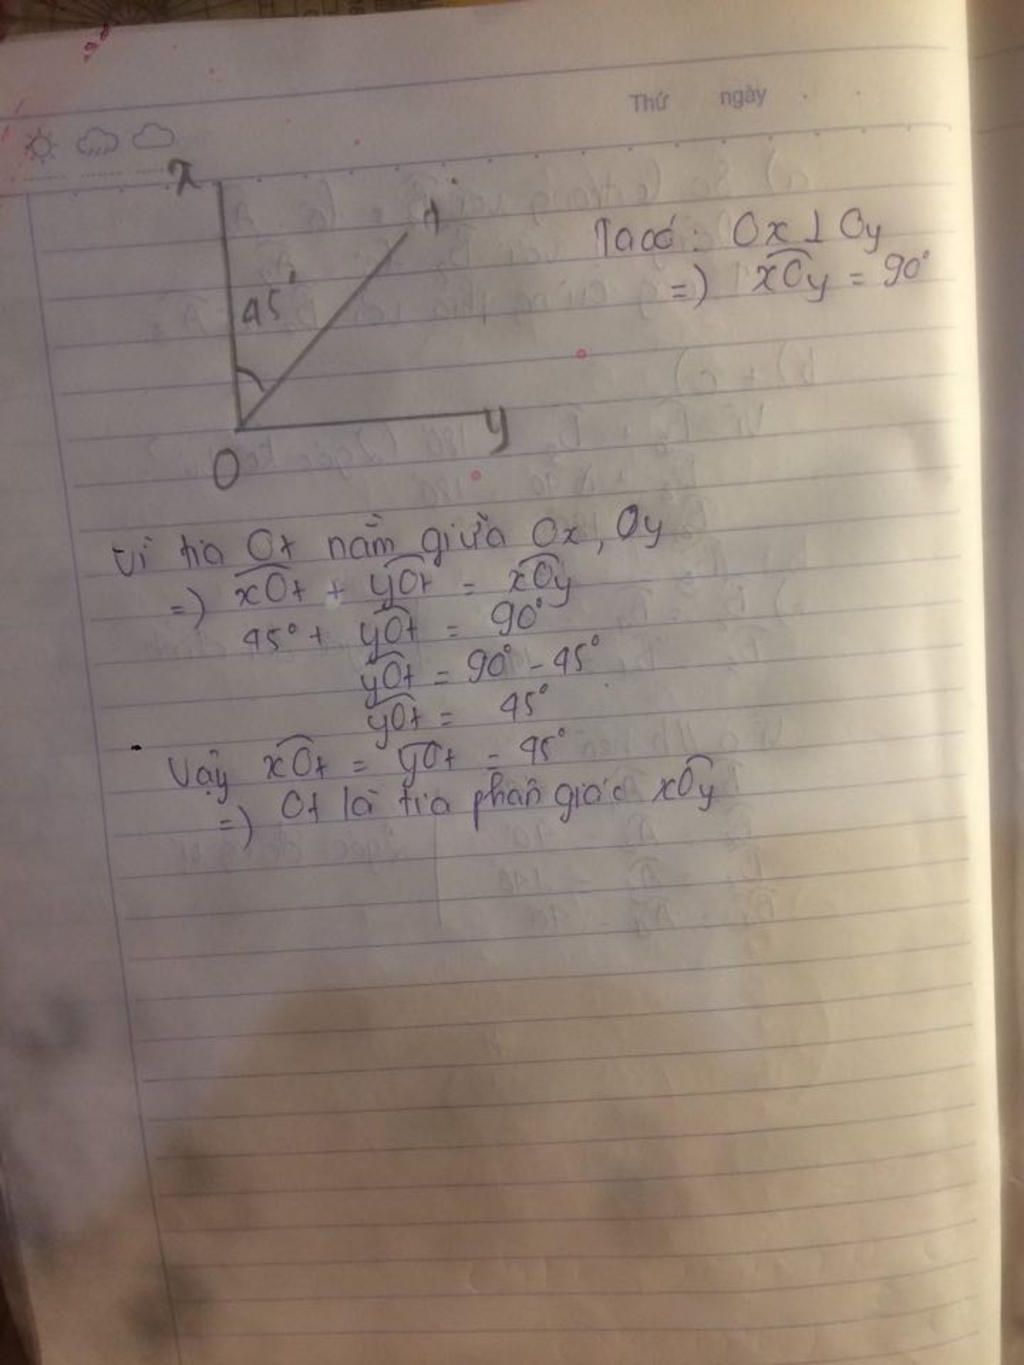 Thứ ngày
x
t
45°
O
y
Ta có: Ox ⊥ Oy
=) xOy = 90°
Vì tia Ot nằm giữa Ox, Oy
=) xOt + yOt = xOy
45° + yOt = 90°
yOt = 90° - 45°
yOt = 45°
Vậy xOt = yOt = 45°
=) Ot là tia phân giác xOy